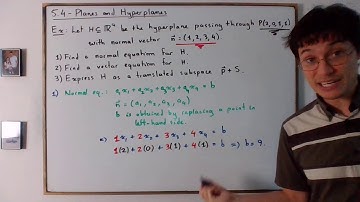 5.4 - Planes and Hyperplanes
Ex: Let H ⊆ ℝ⁴ be the hyperplane passing through P(2,0,1,1)
with normal vector n⃗ = (1,2,3,4)
1) Find a normal equation for H.
2) Find a vector equation for H.
3) Express H as a translated subspace p⃗ + S.
1) Normal eq.: a₁x₁ + a₂x₂ + a₃x₃ + a₄x₄ = b
n⃗ = (a₁, a₂, a₃, a₄)
b is obtained by replacing a point in
left-hand side.
⇒ 1x₁ + 2x₂ + 3x₃ + 4x₄ = b
1(2) + 2(0) + 3(1) + 4(1) = b ⇒ b = 9.